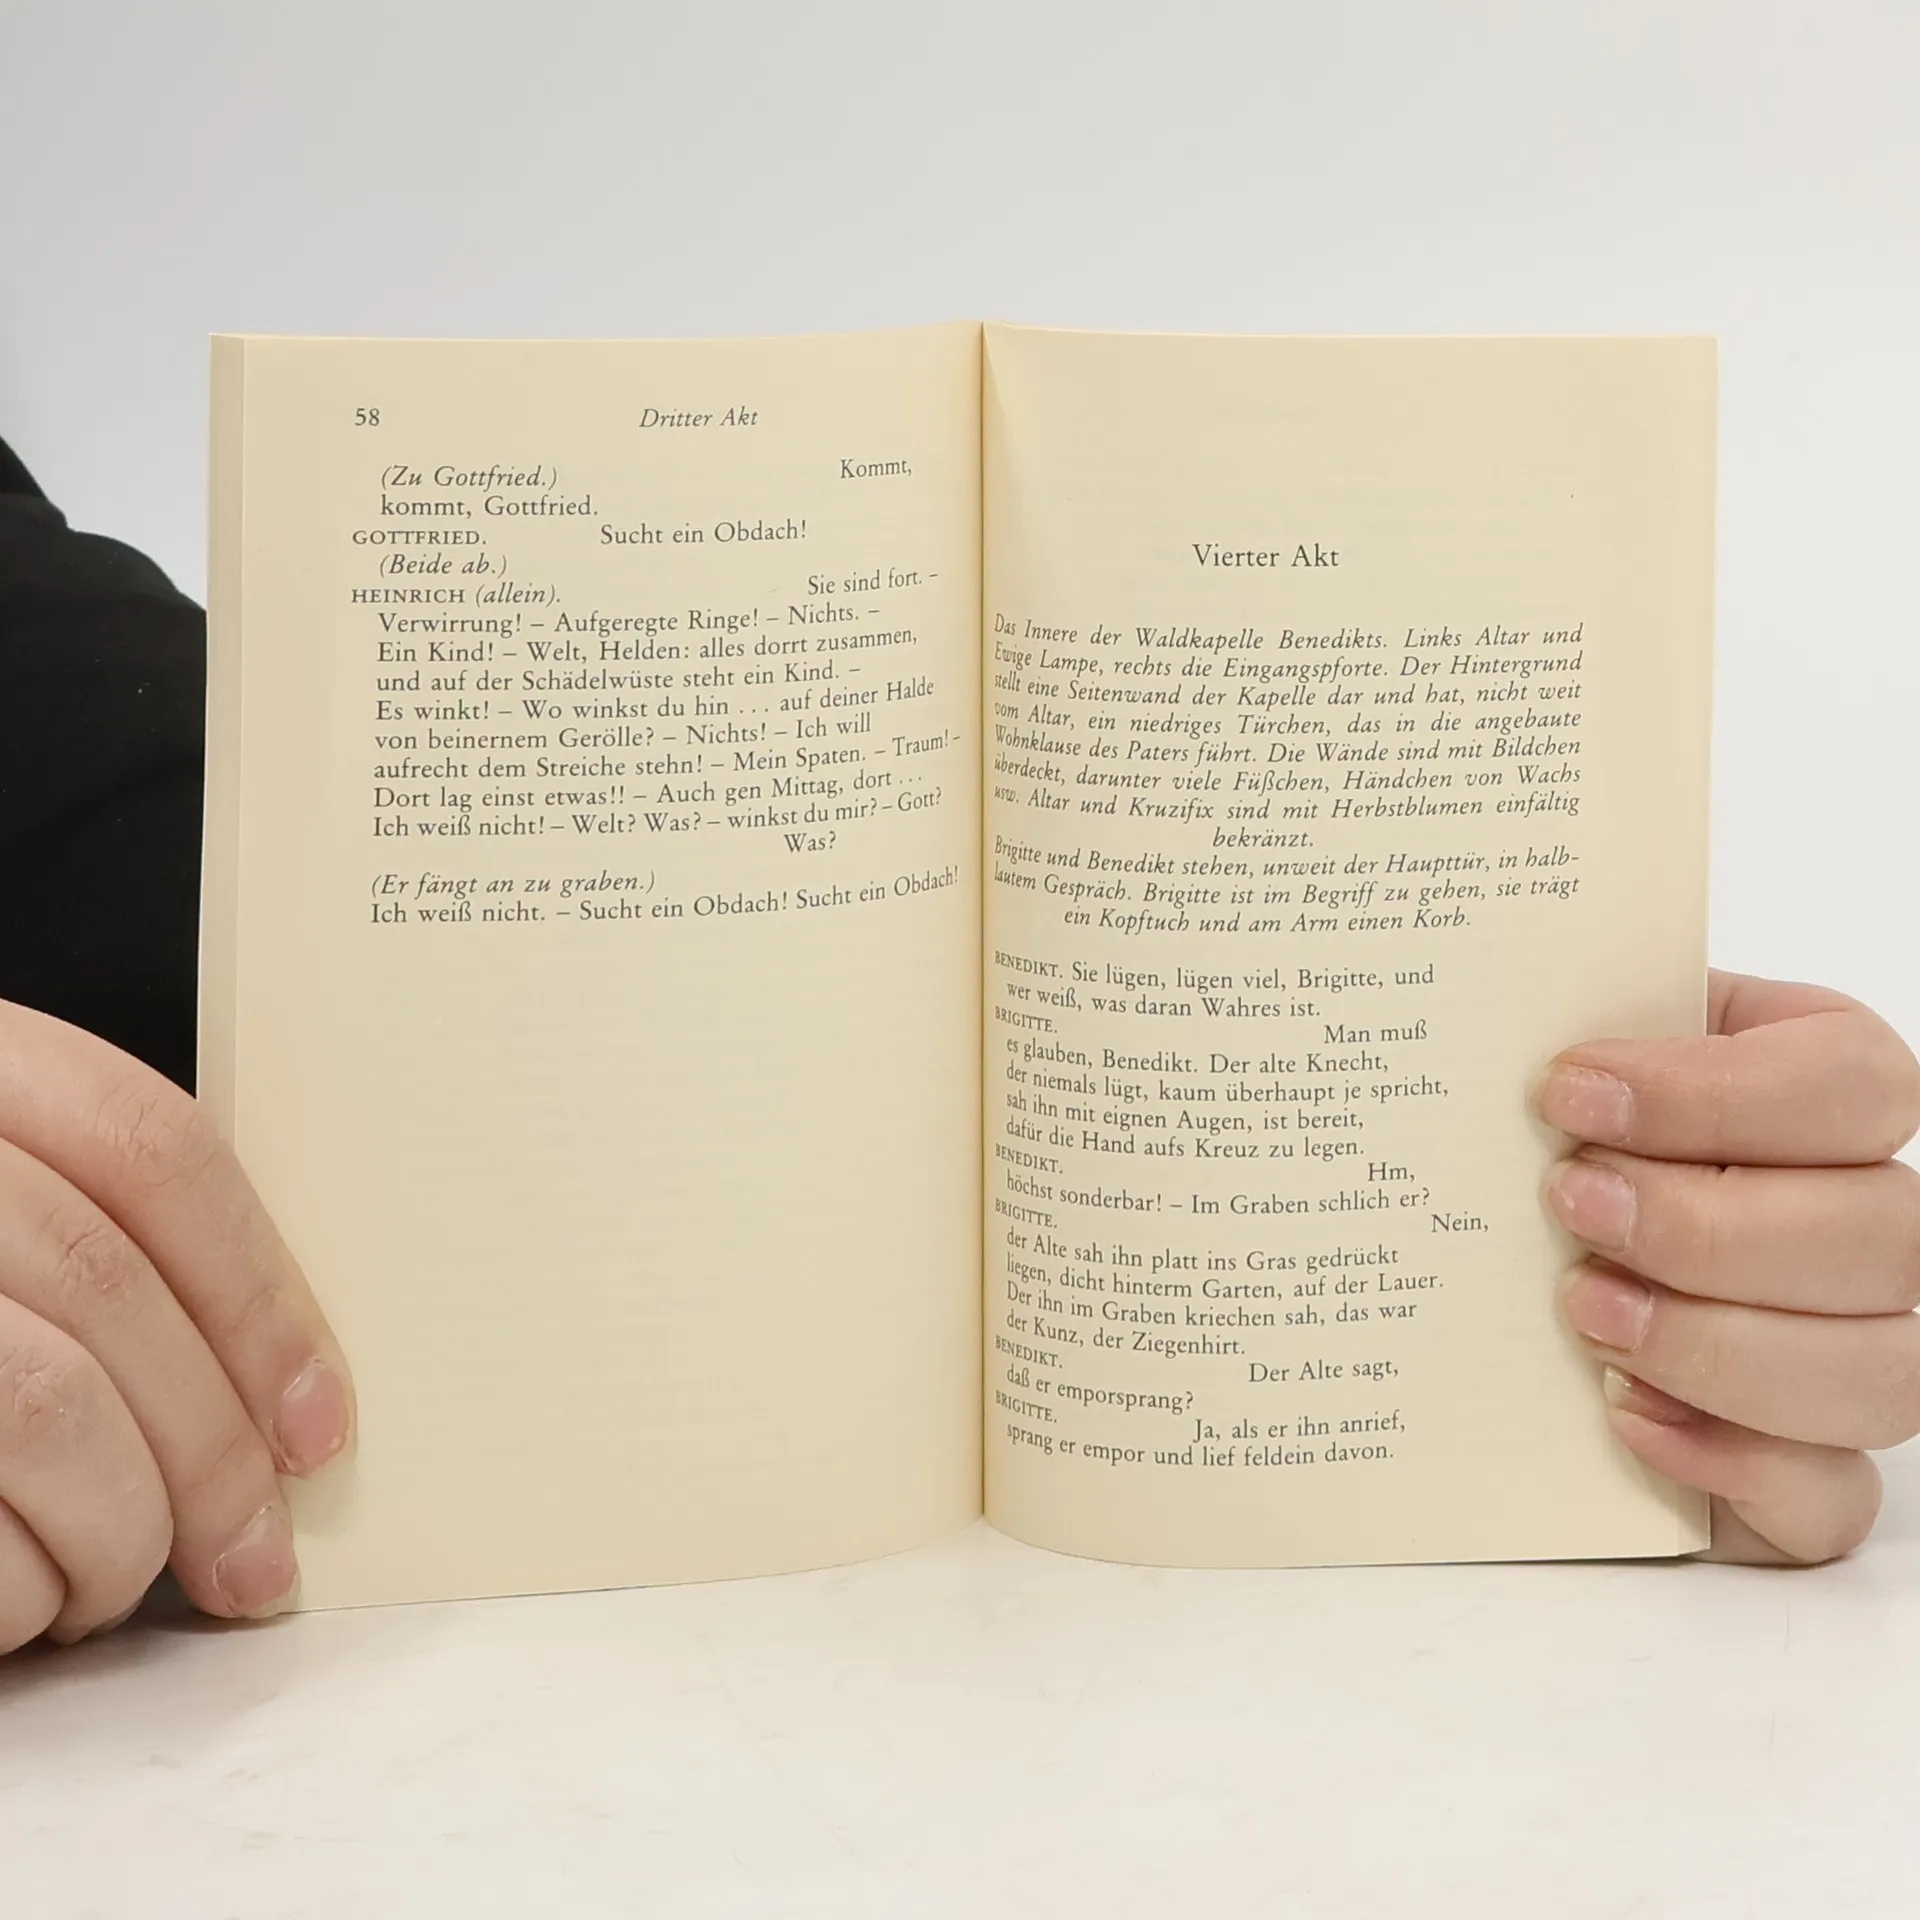 58 Dritter Akt
Kommt,
(Zu Gottfried.)
kommt, Gottfried.
GOTTFRIED. Sucht ein Obdach!
(Beide ab.)
HEINRICH (allein). Sie sind fort. –
Verwirrung! – Aufgeregte Ringe! – Nichts. –
Ein Kind! – Welt, Helden: alles dorrt zusammen,
und auf der Schädelwüste steht ein Kind. –
Es winkt! – Wo winkst du hin ... auf deiner Halde
von beinernem Gerölle? – Nichts! – Ich will
aufrecht dem Streiche stehn! – Mein Spaten. – Traum! –
Dort lag einst etwas!! – Auch gen Mittag, dort ...
Ich weiß nicht! – Welt? Was? – winkst du mir? – Gott?
Was?
(Er fängt an zu graben.)
Ich weiß nicht. – Sucht ein Obdach! Sucht ein Obdach!
Vierter Akt
Das Innere der Waldkapelle Benedikts. Links Altar und
Ewige Lampe, rechts die Eingangspforte. Der Hintergrund
stellt eine Seitenwand der Kapelle dar und hat, nicht weit
vom Altar, ein niedriges Türchen, das in die angebaute
Wohnklause des Paters führt. Die Wände sind mit Bildchen
überdeckt, darunter viele Füßchen, Händchen von Wachs
usw. Altar und Kruzifix sind mit Herbstblumen einfältig
bekränzt.
Brigitte und Benedikt stehen, unweit der Haupttür, in halb-
lautem Gespräch. Brigitte ist im Begriff zu gehen, sie trägt
ein Kopftuch und am Arm einen Korb.
BENEDIKT. Sie lügen, lügen viel, Brigitte, und
wer weiß, was daran Wahres ist.
BRIGITTE. Man muß
es glauben, Benedikt. Der alte Knecht,
der niemals lügt, kaum überhaupt je spricht,
sah ihn mit eignen Augen, ist bereit,
dafür die Hand aufs Kreuz zu legen.
BENEDIKT. Hm,
höchst sonderbar! – Im Graben schlich er?
BRIGITTE. Nein,
der Alte sah ihn platt ins Gras gedrückt
liegen, dicht hinterm Garten, auf der Lauer.
Der ihn im Graben kriechen sah, das war
der Kunz, der Ziegenhirt.
BENEDIKT. Der Alte sagt,
daß er emporsprang?
BRIGITTE. Ja, als er ihn anrief,
sprang er empor und lief feldein davon.